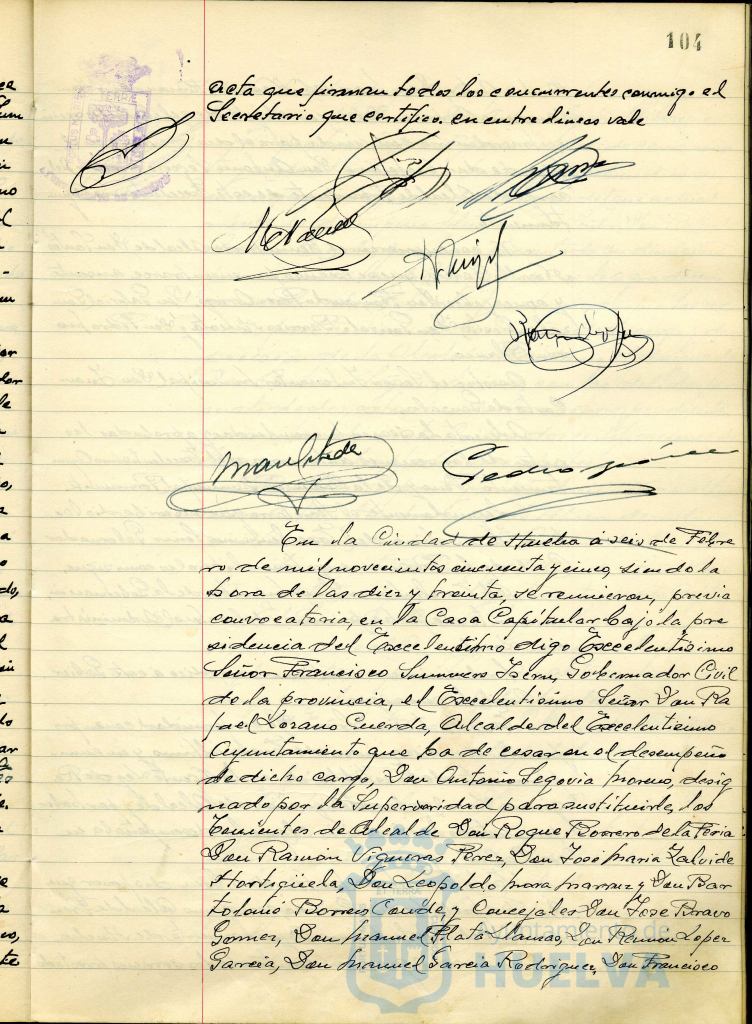 104
acta que firman todos los concurrentes conmigo el
Secretario que certifico. en entre lineas vale
En la Ciudad de Huelva a seis de Febre
ro de mil novecientos cincuenta y cinco, siendo la
hora de las diez y treinta, se reunieron, previa
convocatoria, en la Casa Capitular bajo la pre
sidencia del Excelentitmo digo Excelentisimo
Señor Francisco Summers Isern, Gobernador Civil
de la provincia, el Excelentisimo Señor Don Ra
fael Lozano Cuerda, Alcalde del Excelentisimo
Ayuntamiento que ha de cesar en el desempeño
de dicho cargo, Don Antonio Segovia Moreno, desig
nado por la Superioridad para sustituirle, los
Tenientes de Alcalde Don Roque Borrero de la Feria
Don Ramón Vigueras Perez, Don José Maria Zalvide
Hortigüela, Don Leopoldo Mora y Don Bar
tolomé Borrero Conde, y Concejales Don Jose Bravo
Gomez, Don Manuel Plata Llamas, Don Ramon Lopez
Garcia, Don Manuel Garcia Rodriguez, Don Francisco
Ayuntamiento de
HUELVA